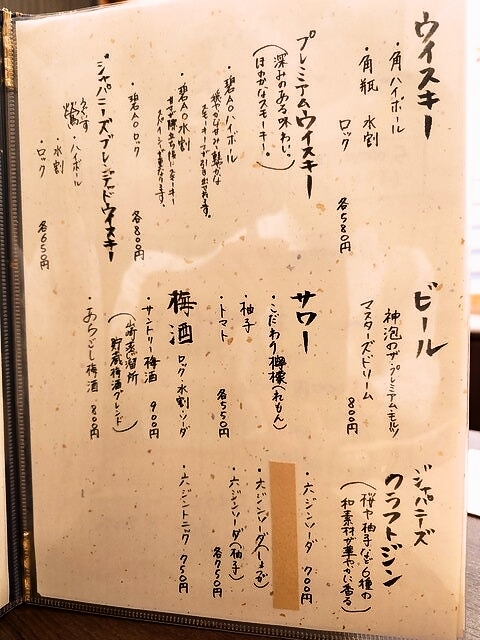 ウイスキー
・角ハイボール
・角瓶 水割
ロック
各580円
プレミアムウイスキー
(深みのある味わい。
ほのかなスモーキー。)
・碧Aoハイボール
・碧Ao水割
・碧Aoロック
各800円
ジャパニーズブレンデッドウイスキー
・ハイボール
・水割
・ロック
各650円
ビール
神泡のザ・プレミアムモルツ
マスターズドリーム
800円
サワー
・こだわり檸檬(れもん)
・柚子
・トマト
各550円
梅酒
ロック 水割 ソーダ
・サントリー梅酒 900円
(山崎蒸留所
貯蔵梅酒ブレンド)
・あらごし梅酒 800円
ジャパニーズ
クラフトジン
(桜や柚子など6種の
和素材が華やかに香る)
・六ジンソーダ 700円
・六ジンソーダ(しょうが)
・六ジンソーダ(柚子)
各750円
・六ジントニック 750円